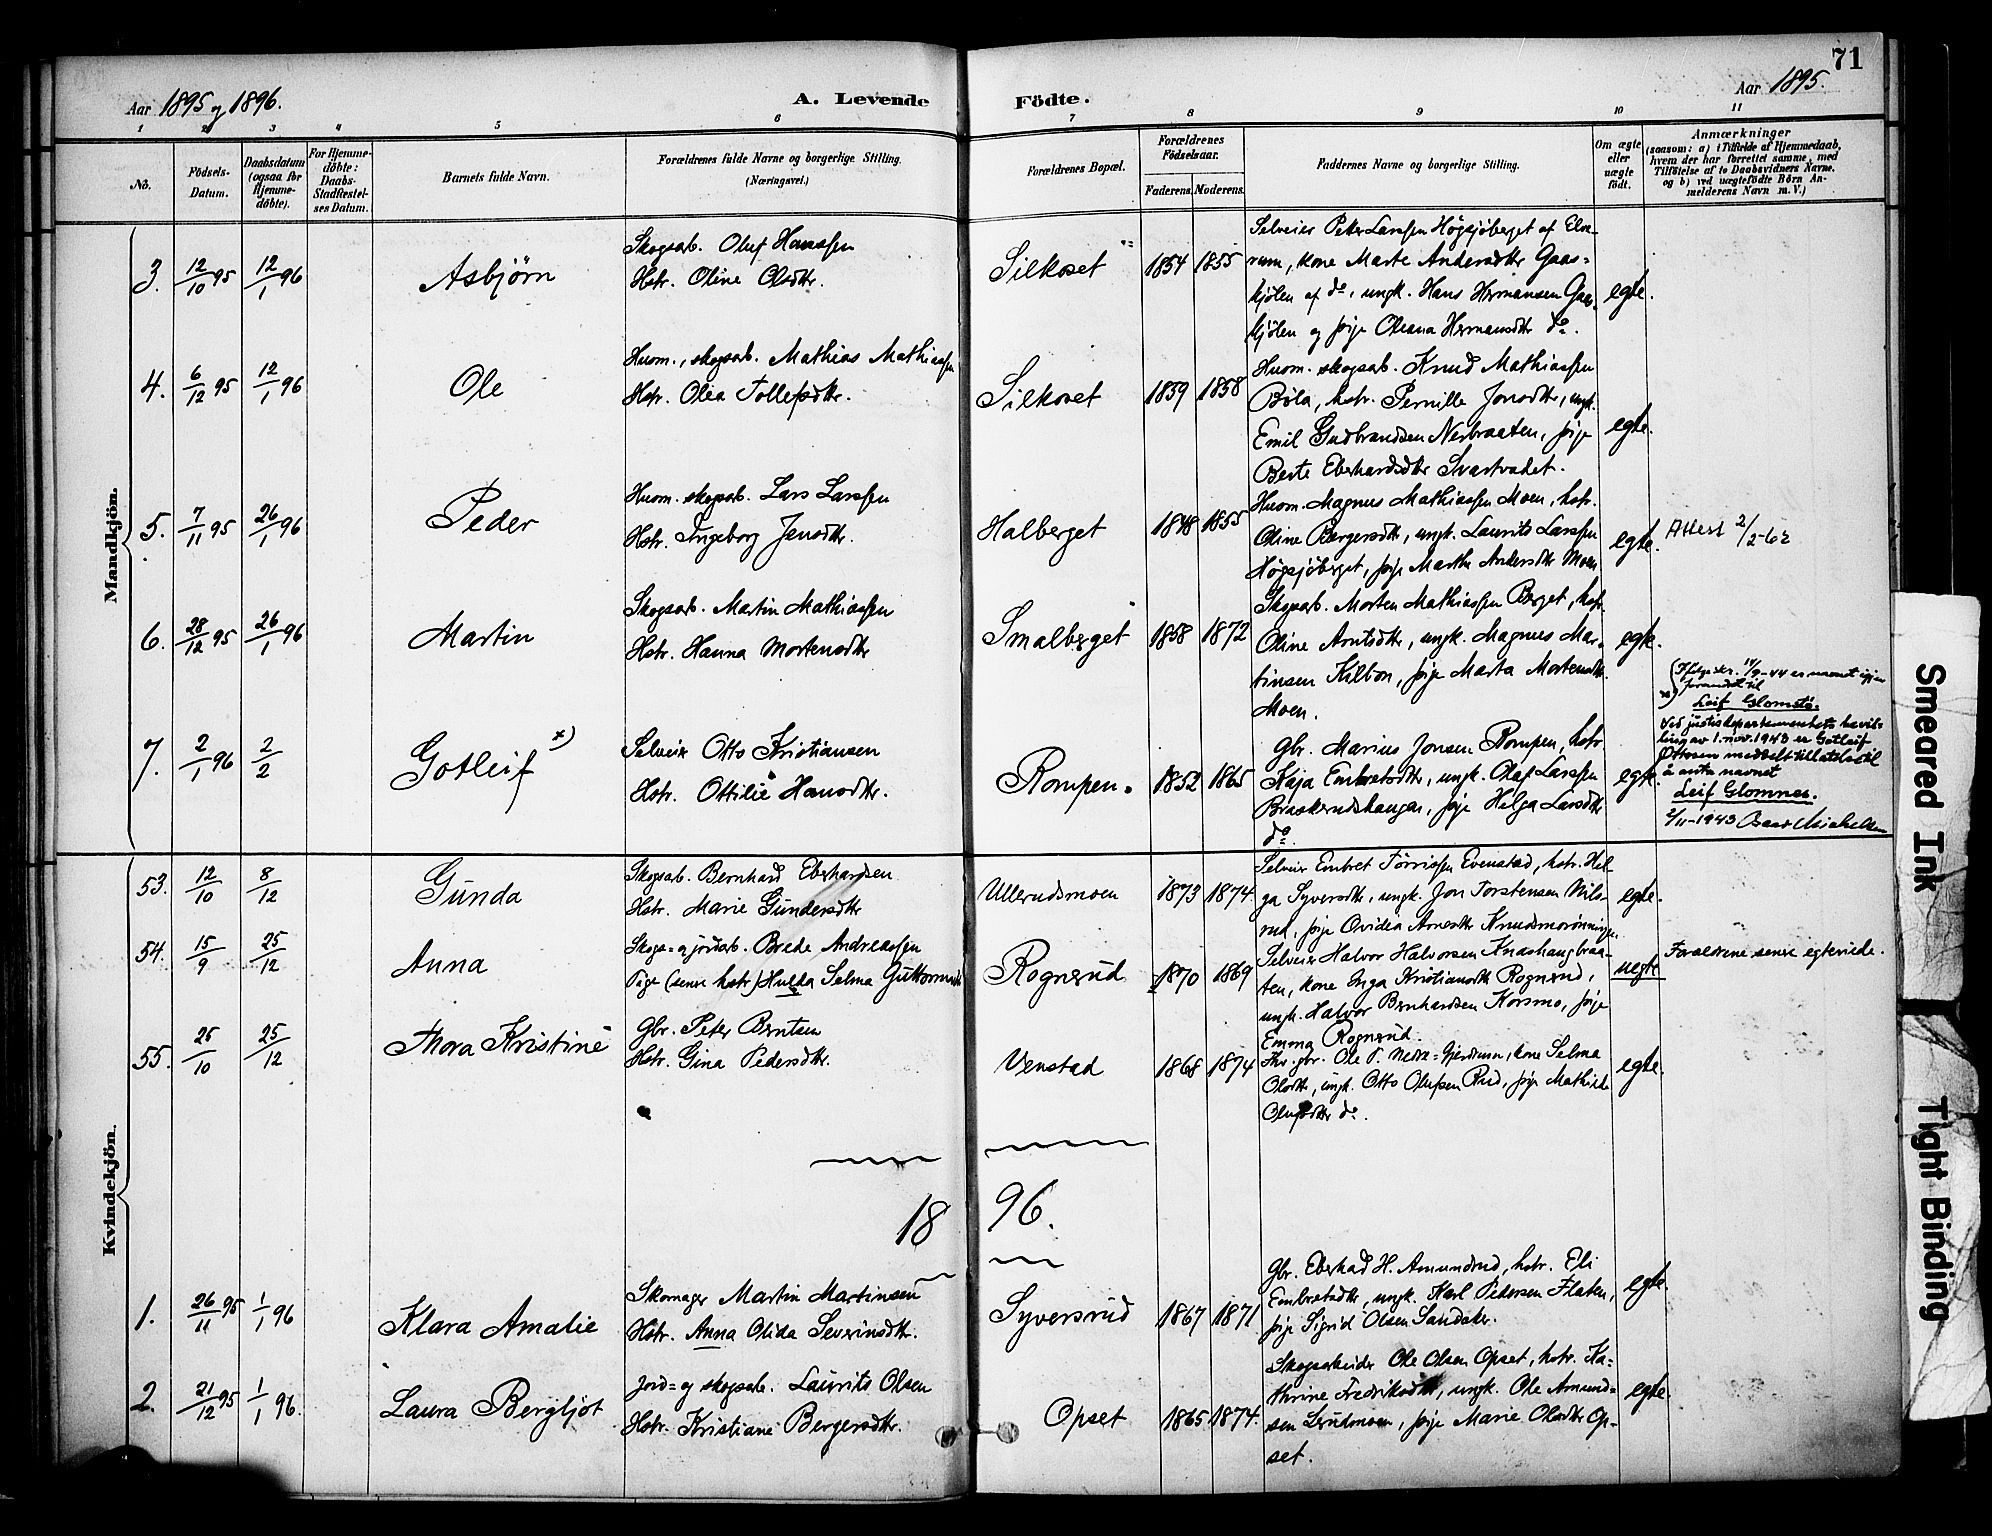 71
Aar 1895 og 1896.
A. Levende Födte.
Aar 1895.
1 2 3 4 5 6 7 8 9 10 11
No.
Födsels-Datum.
Daabsdatum (ogsaa for Hjemmedöbte).
For Hjemmedöbte: Daabs-Stadfæstelses Datum.
Barnets fulde Navn.
Forældrenes fulde Navne og borgerlige Stilling.
(Næringsvei.)
Forældrenes Bopæl.
Forældrenes Födselsaar.
Faderens. Moderens.
Faddernes Navne og borgerlige Stilling.
Om ægte eller uægte födt.
Anmærkninger
(saasom: a) i Tilfælde af Hjemmedaab,
hvem der har forrettet samme, med
Tilföielse af to Daabsvidners Navne,
og b) ved uægtefödte Börn Anmelderens Navn m. V.)
Mandkjön.
3. 12/10 95 12/1 96 Asbjörn
Skogsarb. Oluf Hanssen
Hstr. Oline Olsdtr.
Silkoset 1854 1855
Selveier Peter Larssen Högsjöberget af Elve-
rum, kone Marte Andersdtr Gaas-
kjölen af do, ungk. Hans Hermansen Gaas-
kjölen og pige Oleana Hermansdtr do.
egte.
4. 6/12 95 12/1 96 Ole
Husm., skogsab. Mathias Mathiassen
Hstr. Olea Tollefsdtr.
Silkoset 1859 1858
Husm. skogsab. Knud Mathiassen
Böla, hstr. Pernille Jonsdtr, ungk.
Emil Gudbrandsen Nerbraaten, pige
Berte Eberhardsdtr Svartvadet.
egte.
5. 7/11 95 26/1 96 Peder
Husm. skogsab. Lars Larssen
Hstr. Ingeborg Jensdtr.
Halberget 1848 1855
Husm. Magnus Mathiassen Moen, hstr.
Oline Bergersdtr, ungk. Laurits Larssen
Högsjöberget, pige Marthe Andersdtr Moen
egte.
Attest 2/2-62
6. 28/12 95 26/1 96 Martin
Skogsarb. Martin Mathiassen
Hstr. Hanna Mortensdtr
Smalberget 1858 1872
Skogsarb. Morten Mathiassen Berget, hstr.
Oline Arntsdtr, ungk. Magnus Mar-
tinsen Kilbon, pige Marta Mortensdtr
Moen.
egte.
7. 2/1 96 2/2 Gotleif x)
Selveier Otto Kristiansen
Hstr. Ottilie Hansdtr.
Rompen. 1852 1865
Gbr. Marius Jonsen Rompen, hstr
Kaja Embretsdtr, ungk. Olaf Larssen
Braskerudshaugen, pige Helga Larsdtr
do.
egte.
x) Ifölge skr. 14/9-44 er navnet igjen
forandret til
Leif Glomstö.
Ved justisdepartementets bevil-
ling av 1. nov. 1943 er Gotleif
Ottosen meddelt tillatelse til
å anta navnet
Leif Glomnes.
2/11-1943
Kvindekjön.
53. 12/10 8/12 Gunda
Skogsab. Bernhard Eberhardsen
Hstr. Marie Gundersdtr
Ullerudsmoen 1873 1874.
Selveier Embret Törrissen Evenstad, hstr. Hel-
ga Syversdtr, ungk. Jon Torstensen Nils-
rud, pige Ovidea Arnesdtr
egte.
54. 15/9 25/12 Anna
Skogs- og jordarb. Brede Andreassen
Pige (senere hstr.) Hulda Selma Guttormsdtr
Rognerud 1870 1869
Selveier Halvor Halvorsen Knashaugbraa-
ten, kone Inga Kristiansdtr Rognerud,
ungk. Halvor Bernhardsen Korsmo, pige
Emma Rognerud.
uegte
Forældrene senere egteviede.
55. 25/10 25/12 Thora Kristine
Gbr. Peter Berntsen
Hstr. Gina Pedersdtr.
Venstad 1868 1874
Fhv. gbr. Ole P. Nedre-Gjerdrum, kone Selma
Olsdtr, ungk. Otto Olufsen Rud, pige Mathilde
Olufsdtr do.
egte.
1896.
1. 26/11 95 1/1 96 Klara Amalie
Skomager Martin Martinsen
Hstr. Anna Olida Severinsdtr.
Syversrud 1867 1871
Gbr. Eberhad H. Amundrud, hstr. Eli
Embretsdtr, ungk. Karl Petersen Flaten,
pige Sigrid Olsen Sandaker.
egte.
2. 21/12 95 1/1 96. Laura Bergljot
Jord- og skogsab. Laurits Olsen
Hstr. Kristiane Bergersdtr.
Opset 1865 1874.
Skogsarbeider Ole Olsen Opset, hstr. Ka-
thrine Fredriksdtr, ungk. Ole Amund-
sen Lerudmoen, pige Marie Olsdtr Op-
set.
egte.
Smeared Ink
Tight Binding